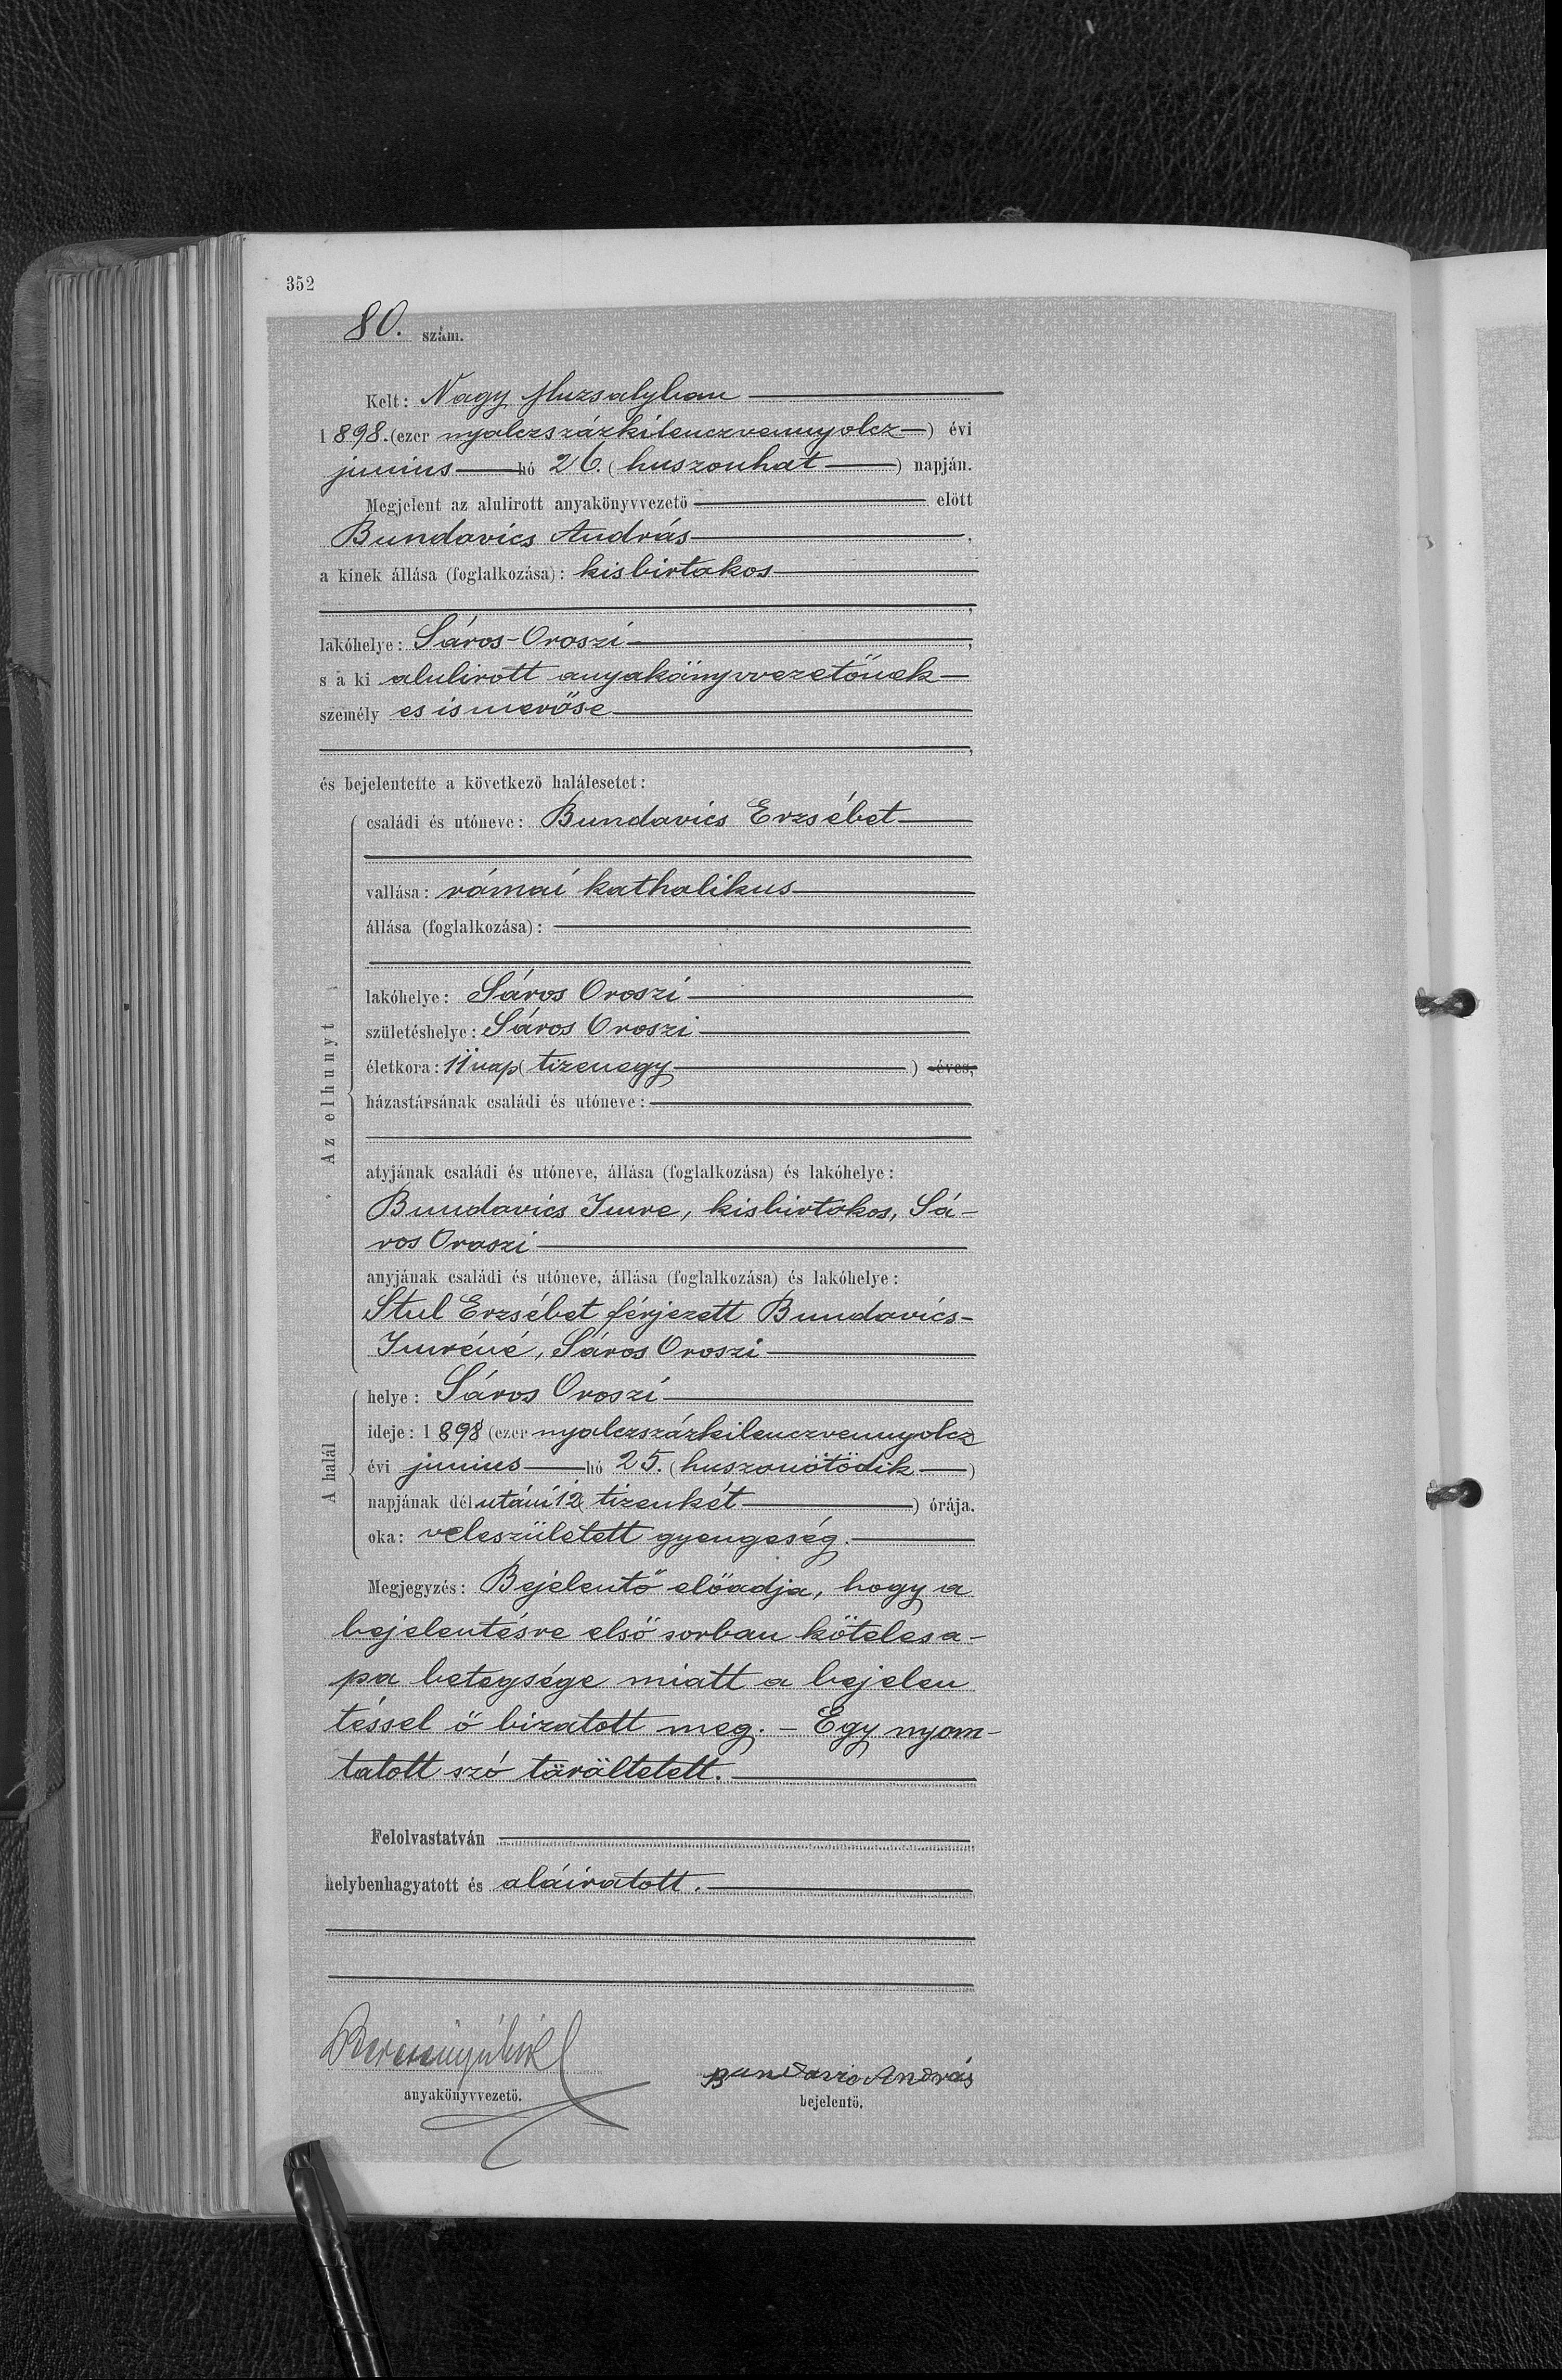 352
80. szám.
Kelt: Nagy Muzsalyban
1898. (ezer nyolczszázkilenczvennyolcz) évi
junius hó 26. (huszonhat) napján.
Megjelent az alulirott anyakönyvvezető előtt
Bundavics András
a kinek állása (foglalkozása): kisbirtokos
,
lakóhelye: Sáros-Oroszi,
s a ki alulirott anyakönyvvezetőnek
személyes ismerőse
,
és bejelentette a következő halálesetet:
Az elhunyt
családi és utóneve: Bundavics Erzsébet
vallása: római katholikus
állása (foglalkozása):
lakóhelye: Sáros Oroszi
születéshelye: Sáros Oroszi
életkora: 11 nap (tizenegy) éves,
házastársának családi és utóneve:
atyjának családi és utóneve, állása (foglalkozása) és lakóhelye:
Bundavics Imre, kisbirtokos, Sá-
ros Oroszi
anyjának családi és utóneve, állása (foglalkozása) és lakóhelye:
Stul Erzsébet férjezett Bundavics-
Imréné, Sáros Oroszi
A halál
helye: Sáros Oroszi
ideje: 1898 (ezer nyolczszázkilenczvennyolcz
évi junius hó 25. (huszonötödik)
napjának délutáni 12 (tizenkét) órája.
oka: veleszületett gyengeség.
Megjegyzés: Bejelentő előadja, hogy a
bejelentésre első sorban köteles a-
pa betegsége miatt a bejelen
téssel ő bizatott meg. - Egy nyom-
tatott szó töröltetett.
Felolvastatván
helybenhagyatott és aláiratott.
Bundavic András
anyakönyvvezető.
bejelentő.